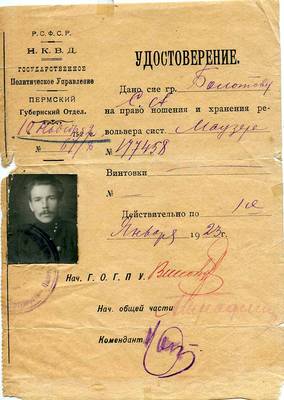 Р. С. Ф. С. Р.
Н. К. В. Д.
ГОСУДАРСТВЕННОЕ
Политическое Управление
ПЕРМСКИЙ
Губернский Отдел.
№
УДОСТОВЕРЕНИЕ.
Дано сие гр. Болотову
на право ношения и хранения ре-
вольвера сист. Маузер
№ 177458
Винтовки
№
Действительно по 1ое
Января 1923 г.
Нач. Г. О. Г. П. У.
Нач. общей части
Комендант